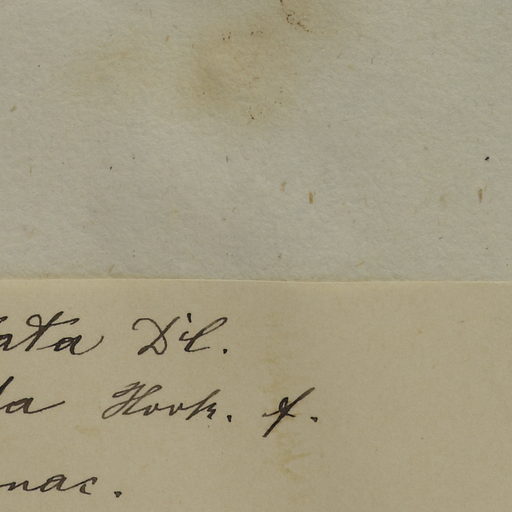 ata Dil.
la Hook. f.
nac.